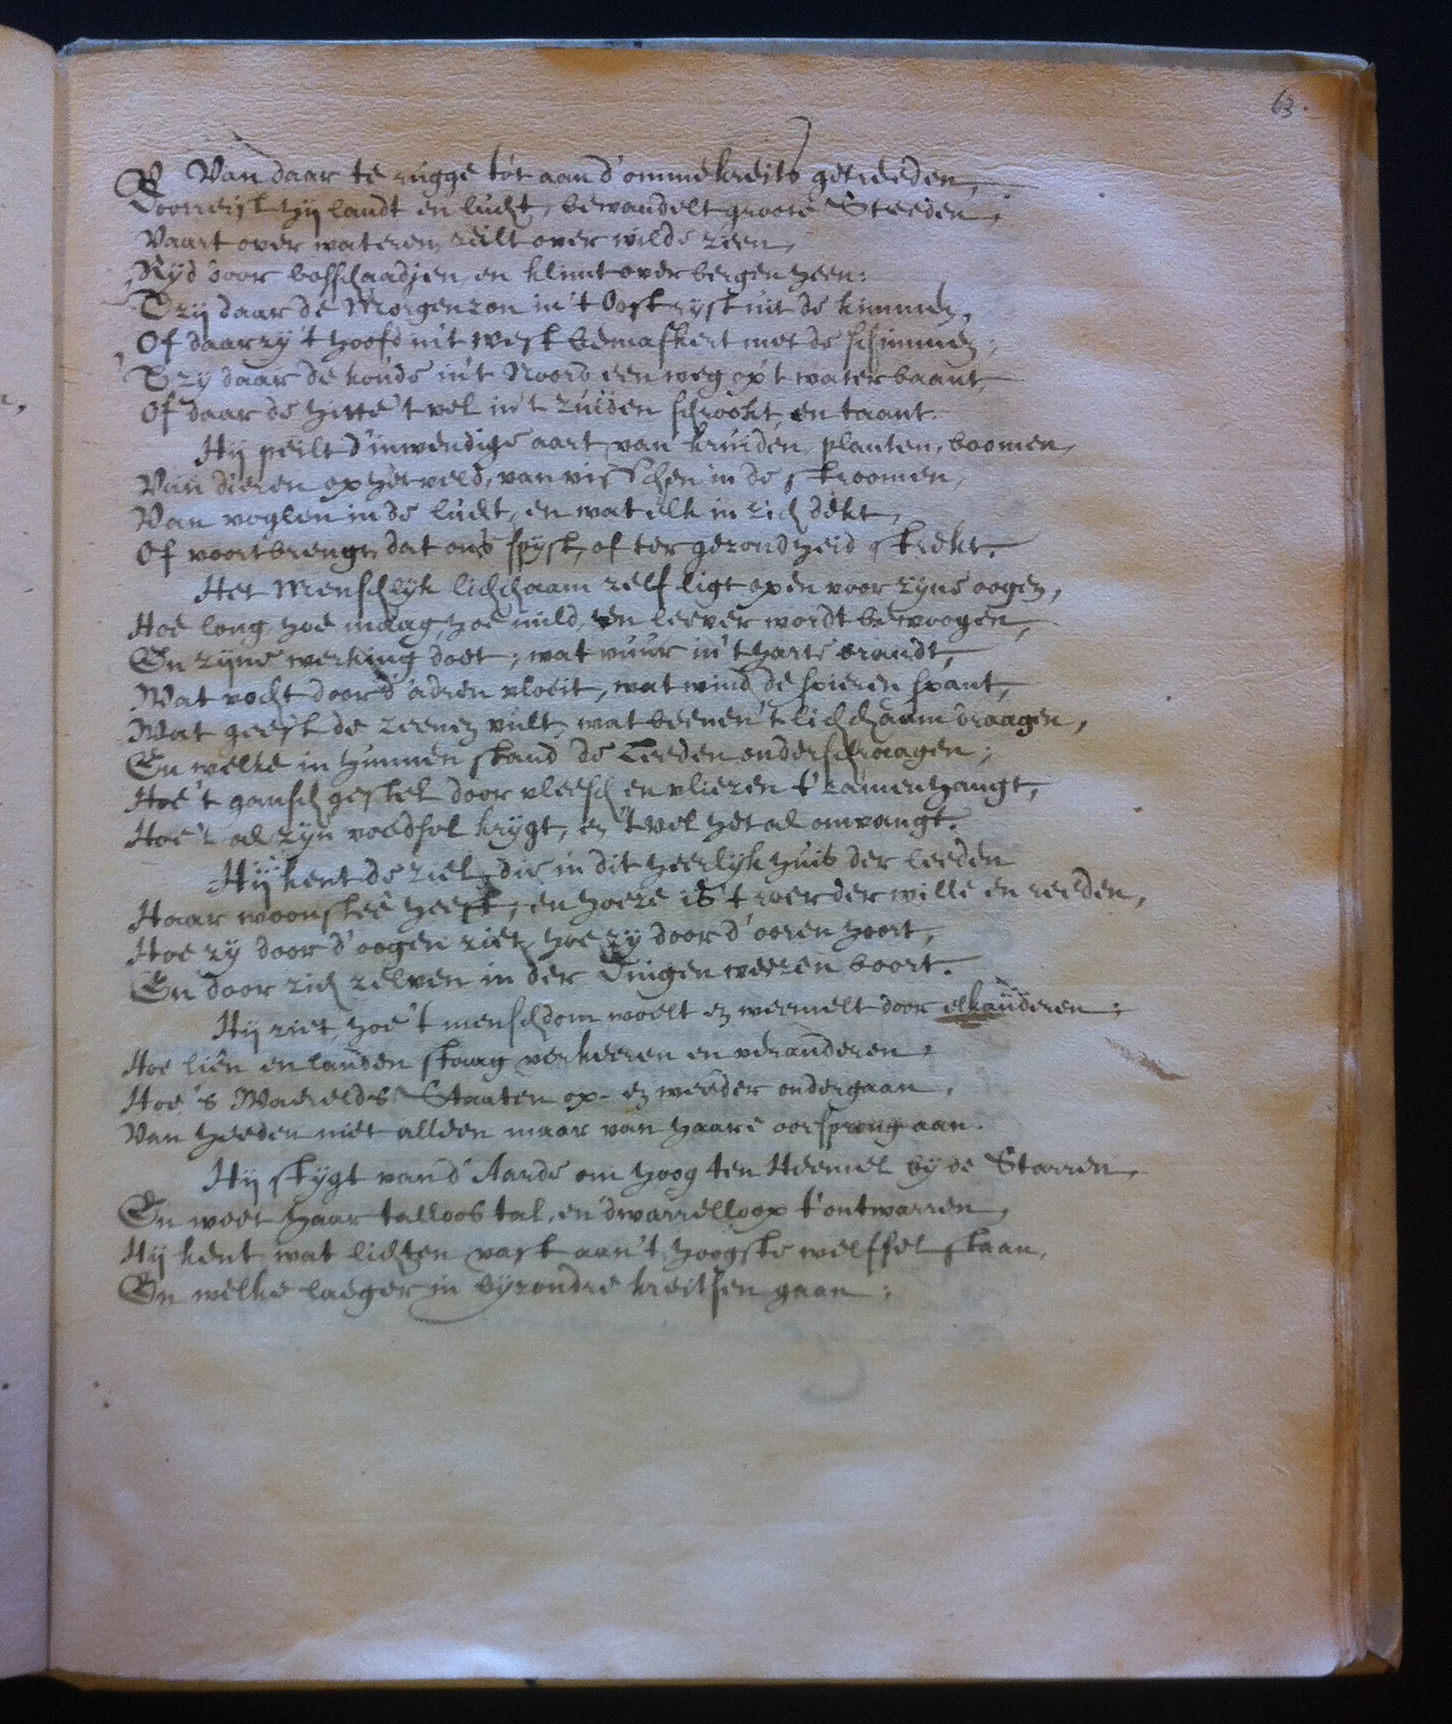 63.
Van daar te rugge tót aan d'ommekreits getreeden,
Doorreist hij landt en lucht, bewandelt groote Steeden,
Vaart over wateren, zeilt over wilde zeen,
Rijd door bosschaadjen, en klimt over bergen heen:
't Zij daar de Morgenzon in 't Oost ryst uit de kimmen,
Of daar zy 't hoofd in 't west bemaskert met de schimmen;
't Zy daar de koude in 't Noord een weg op 't water baant,
Of daar de hitte 't vel in 't zuiden schrookt, en taant.
Hij peilt d'inwendige aart van kruiden, planten, boomen,
Van dieren op het veld, van visschen in de stroomen,
Van voglen in de lucht, en wat elk in zich dekt,
Of voortbrengt, dat ons spyst, of ter gezondheid strekt.
Het Menschlyk lichchaam zelf ligt open voor zyne oogen,
Hoe long, hoe maag, hoe mild, en leever wordt bewoogen,
En zijne werking doet; wat vuur in 't harte brandt,
Wat vocht door d'adren vloeit, wat wind de spieren spant,
Wat geest de zeenen vult, wat beenen 't lichchaam draagen,
En welke in hunnen stand de Leeden onderschraagen;
Hoe 't gansch gestel door vleesch en vliezen t'zamenhangt,
Hoe 't al zyn voedsel krygt, en 't vel het al omvangt.
Hij kent de ziel, die in dit heerlijk huis der leeden
Haar woonsteê heeft, en hoeze is 't roer der wille en reeden,
Hoe zy door d'oogen ziet, hoe zy door d'ooren hoort,
En door zich zelven in der Dingen weezen boort.
Hij ziet, hoe 't menschdom woelt en wemelt door elkanderen;
Hoe liên en landen staag verkeeren en veranderen;
Hoe 's Waerelds Staaten op- en weeder ondergaan,
Van heeden niet alleen maar van haare oorsprong aan.
Hij stygt van d'Aarde om hoog ten Heemel by de Starren,
En weet haar talloos tal, en dwarrelloop t'ontwarren,
Hij kent wat lichten vast aan 't hoogste welffel staan,
En welke laeger in byzondre kreitsen gaan;